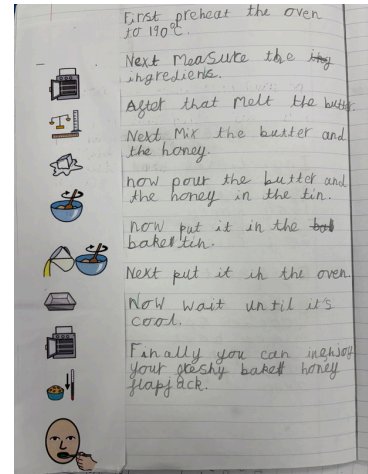 First preheat the oven
to 190°C.
Next Measure the
ingrediens.
After that Melt the butter.
Next Mix the butter and
the honey.
now pour the butter and
the honey in the tin.
now put it in the
baket tin.
Next put it in the oven.
Now wait until it's
cool.
Finally you can inenjoy
your freshy baket honey
flapjack.